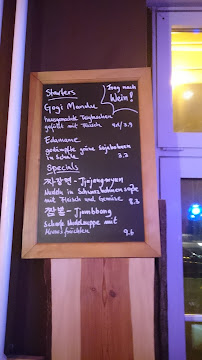 Starters
Frag nach
Wein!
Gogi Mandu
hausgemachte Teigtaschen
gefüllt mit Fleisch
Edamame
gedämpfte grüne Sojabohnen
in Schale 3.2
Specials
짜장면 - Jjajangmyun
Nudeln in Schwarzbohnensoße
mit Fleisch und Gemüse 8.2
짬뽕 - Jjambbong
Scharfe Nudelsuppe mit
Meeresfrüchten 9.6